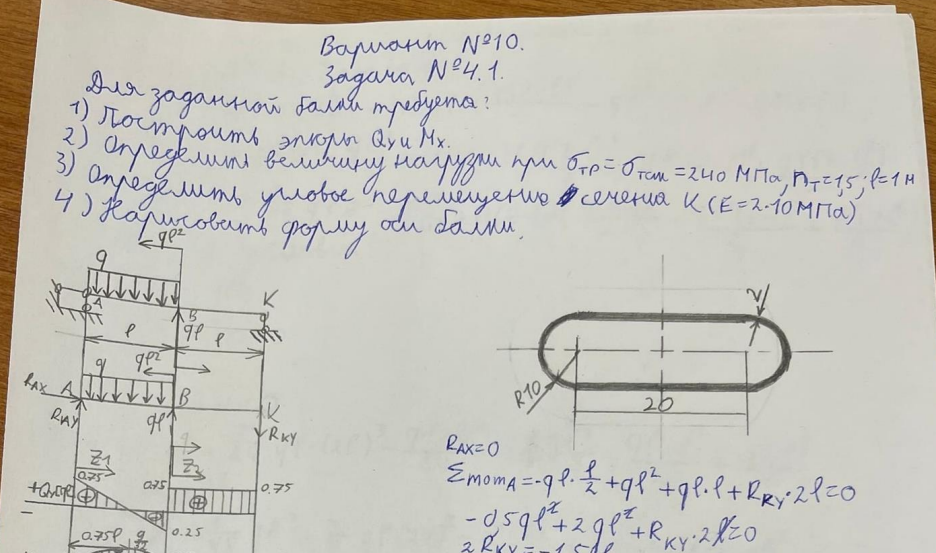 Вариант №10.
Задача №4.1.
Для заданной балки требуется:
1) Построить эпюры Qy и Mx.
2) Определить величину нагрузки при σтр=σтсж=240 МПа, nт=1,5; l=1м
3) Определить угловое перемещение сечения K (E=2·10 МПа)
4) Нарисовать форму оси балки.
ql²
q
A
B
K
l
ql
l
q
ql²
RAX
A
B
K
RAY
ql
RKY
Z1
Z2
0.75
0.75
0.75
+Qy
0.25
0.75l
2
R10
20
RAX=0
ΣmomA=-ql·l/2+ql²+ql·l+RKY·2l=0
-0,5ql²+2ql²+RKY·2l=0
2RKY=-1,5ql